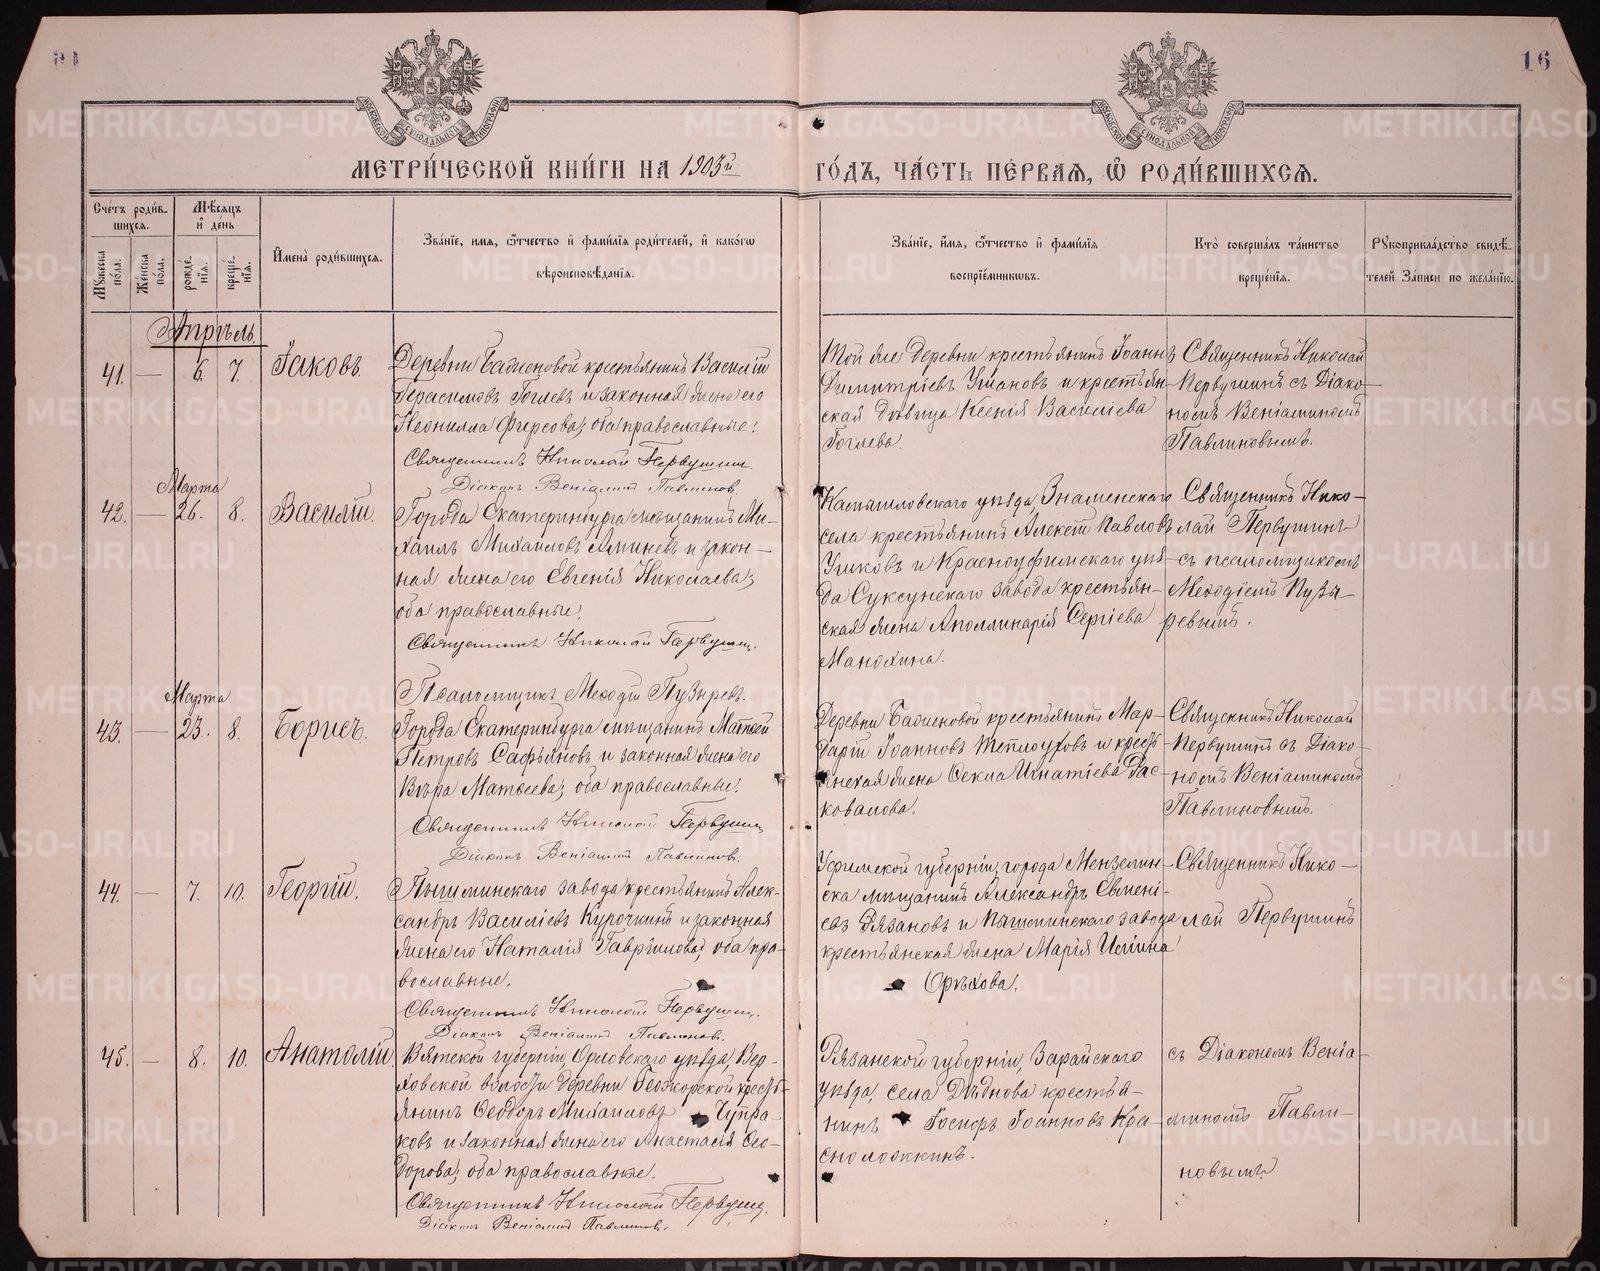 16
МЕТРИ́ЧЕСКОЙ КНИ́ГИ НА 1903й ГО́ДЪ, ЧА́СТЬ ПЕ́РВАѦ, Ѽ РОДИ́ВШИХСѦ.
Сче́тъ роди́в-
шихсѧ.
Мꙋ́жеска по́ла.
Же́нска по́ла.
Мѣ́сѧцъ
и҆ де́нь
рожде́нїѧ.
креще́нїѧ.
И҆мена̀ роди́вшихсѧ.
Зва́нїе, имѧ, ѻ҆́тчество и҆ фами́лїѧ роди́телей, и҆ како́гѡ
вѣроисповѣ́данїѧ.
Зва́нїе, и҆́мѧ, ѻ҆́тчество и҆ фами́лїѧ
воспрїе́мникѡвъ.
Кто̀ соверша́лъ та́инство
креще́нїѧ.
Рꙋкоприкла́дство свидѣ́-
телей За́писи по жела́нїю.
Апрѣль
41. — 6. 7. Іаковъ.
Деревни Баженовой крестьянинъ Василій
Герасимовъ Гоглевъ и законная жена его
Неонилла Фирсова; оба православные.
Священникъ Николай Первушин.
Діаконъ Веніамин Павлинов.
Той же деревни крестьянинъ Іоаннъ
Димитріевъ Ушановъ и крестьян-
ская дѣвица Ксенія Василіева
Гоглева.
Священникъ Николай
Первушинъ съ Діако-
номъ Веніаминомъ
Павлиновымъ.
Марта
42. — 26. 8. Василій.
Города Екатеринбурга мѣщанинъ Ми-
хаилъ Михаиловъ Аминевъ и закон-
ная жена его Евгенія Николаева;
оба православные.
Священникъ Николай Первушин.
Псаломщикъ Меѳодій Пузыревъ.
Камышловского уѣзда, Знаменскаго
села крестьянинъ Алексѣй Павловъ
Ушковъ и Красноуфимскаго уѣз-
да Суксунскаго завода крестьян-
ская жена Аполлинарія Сергіева
Манохина.
Священникъ Нико-
лай Первушинъ
съ псаломщикомъ
Меѳодіемъ Пузы-
ревымъ.
Марта
43. — 23. 8. Борисъ.
Города Екатеринбурга мѣщанинъ Матѳей
Петровъ Сафьяновъ и законная жена его
Вѣра Матѳеева; оба православные.
Священникъ Николай Первушин
Діаконъ Веніамин Павлинов.
Деревни Баженовой крестьянинъ Мар-
дарій Іоанновъ Теплоуховъ и кресть-
янская жена Ѳекла Игнатіева Рас-
ковалова.
Священникъ Николай
Первушинъ съ Діако-
номъ Веніаминомъ
Павлиновымъ.
44. — 7. 10. Георгій.
Пышминскаго завода крестьянинъ Алек-
сандръ Василіевъ Курочкинъ и законная
жена его Наталія Гавріилова; оба пра-
вославные.
Священникъ Николай Первушин.
Діаконъ Веніамин Павлинов.
Уфимской губерніи, города Мензелин-
ска мѣщанинъ Александръ Евмені-
евъ Рязановъ и Пышминскаго завода
крестьянская жена Марія Иліина
Орѣхова.
Священникъ Нико-
лай Первушинъ
45. — 8. 10. Анатолій.
Вятской губерніи, Орловскаго уѣзда, Вер-
ховской волости деревни кресть-
янинъ Ѳеодоръ Михаиловъ Чупра-
ковъ и законная жена его Анастасія Ѳео-
дорова; оба православные.
Священникъ Николай Первушин.
Діаконъ Веніамин Павлинов.
Рязанской губерніи, Зарайскаго
уѣзда, села Дѣднова крестья-
нинъ Іосифъ Іоанновъ Кра-
сноложкинъ.
съ Діакономъ Веніа-
миномъ Павли-
новымъ
METRIKI.GASO-URAL.RU